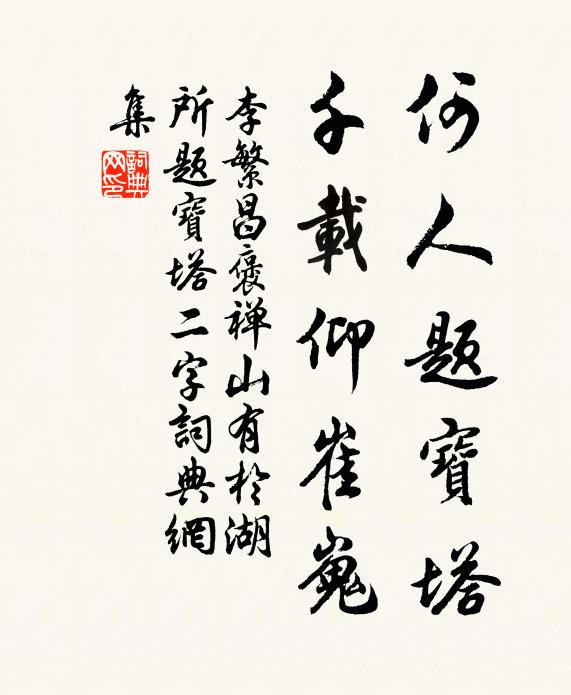 何人題寶塔
千載仰崔嵬
李繁昌褒禅山有於湖
所題寶塔二字詞典網
集
詞典
网印